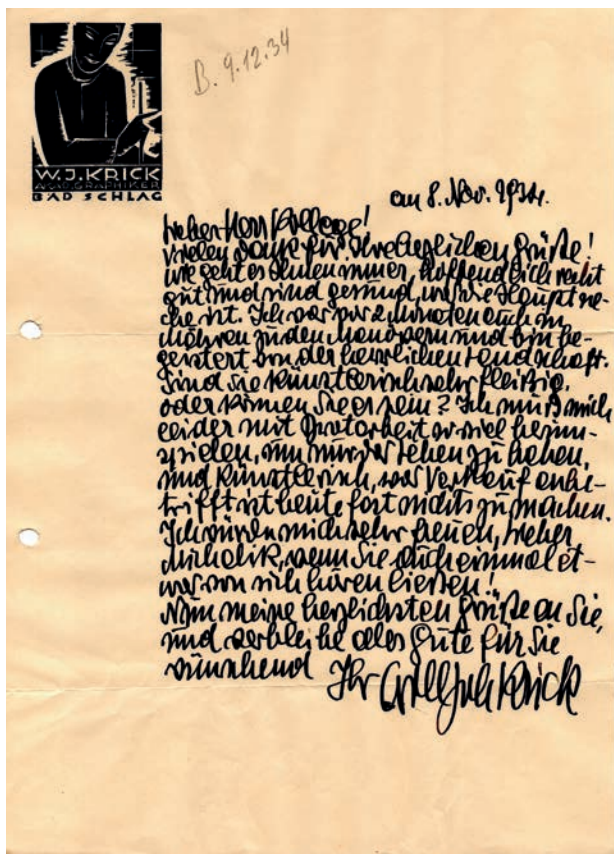 B. 9.12.34
W.J.KRICK
ACAD. GRAPHIKER
BAD SCHLAG
am 8. Nov. 1934.
Lieber Herr Kollege!
Vielen Dank für Ihre herzlichen Grüße!
Wie geht es Ihnen immer, hoffendlich recht
gut und sind gesund, was die Hauptsa-
che ist. Ich war vor 2 Monaten auch in
Mähren zu den Manövern und bin be-
geistert von der herrlichen Landschaft.
Sind Sie künstlerisch sehr fleißig,
oder können Sie es sein? Ich muß mich
leider mit Brotarbeit so viel herum-
spielen, um nur das Leben zu haben,
und künstlerisch, was Verkauf anbe-
trifft ist heute fast nichts zu machen.
Ich würde mich sehr freuen, lieber
Michalik, wenn Sie auch einmal et-
was von sich hören ließen!
Nun meine herzlichsten Grüße an Sie,
und verbleibe alles Gute für Sie
wünschend Ihr Krick